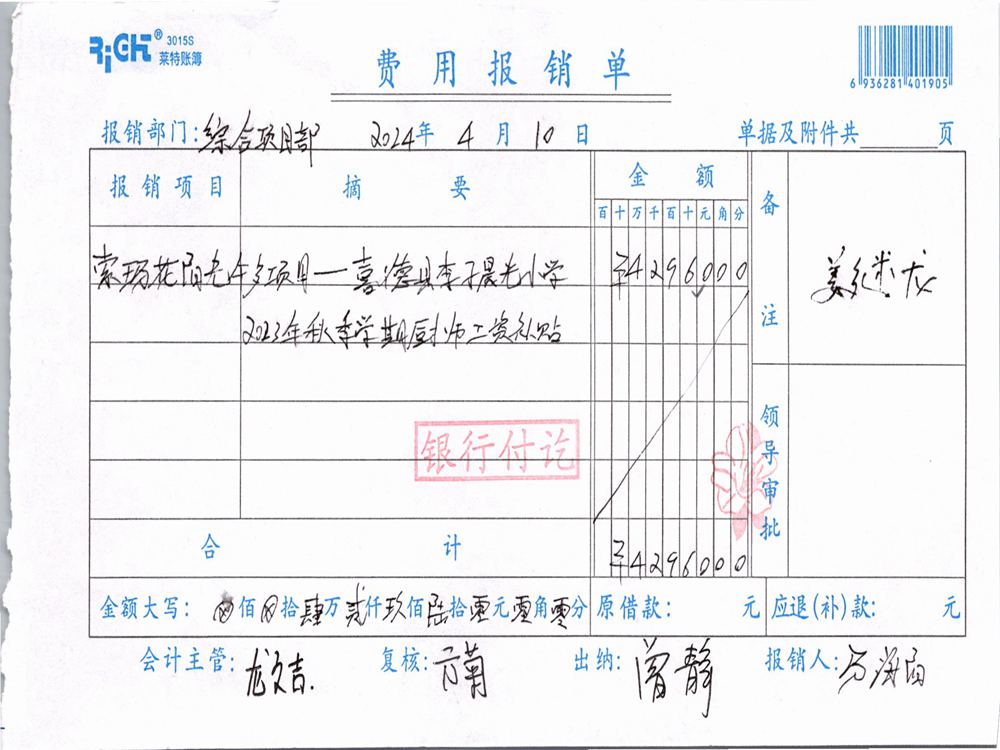 RICH® 3015S
莱特账簿
费用报销单
6 936281 401905
报销部门:综合项目部 2024年 4 月 10 日 单据及附件共 页
报销项目 摘要 金额 备注
百 十 万 千 百 十 元 角 分
索玛花阳光午多项目—喜德县李子晨光小学 ¥4296000 姜继龙
2023年秋季学期厨师工资补贴
银行付讫
领导审批
合计 ¥4296000
金额大写: 佰 拾肆万贰仟玖佰陆拾零元零角零分 原借款: 元 应退(补)款: 元
会计主管:龙文吉. 复核:方菊 出纳:曾静 报销人:方海